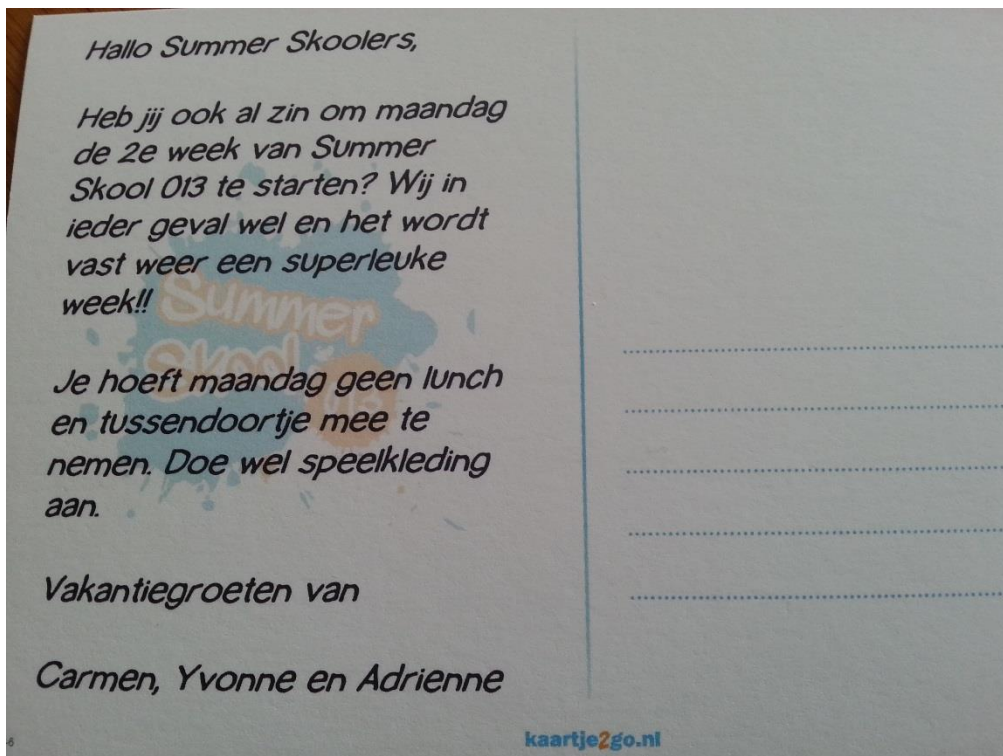 Hallo Summer Skoolers,
Heb jij ook al zin om maandag
de 2e week van Summer
Skool 013 te starten? Wij in
ieder geval wel en het wordt
vast weer een superleuke
week!!
Summer
Skool
013
Je hoeft maandag geen lunch
en tussendoortje mee te
nemen. Doe wel speelkleding
aan.
Vakantiegroeten van
Carmen, Yvonne en Adrienne
kaartje2go.nl